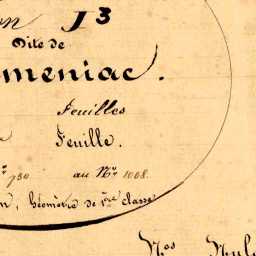 on J3
Dite de
meniac.
Feuilles
Feuille.
730 au No 1008.
n, Géomètre de 1ère classe
Nos